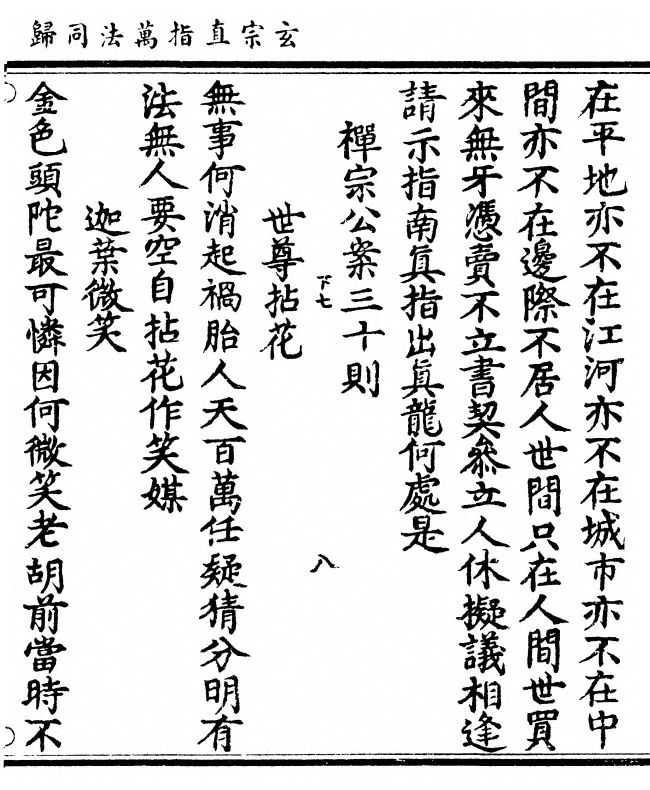 玄宗直指萬法同歸
在平地亦不在江河亦不在城市亦不在中
間亦不在邊際不居人世間只在人間世買
來無牙憑賣不立書契叅立人休擬議相逢
請示指南眞指出眞龍何處是
禪宗公案三十則
下七
八
世尊拈花
無事何消起禍胎人天百萬任疑猜分明有
法無人要空自拈花作笑媒
迦葉微笑
金色頭陀最可憐因何微笑老胡前當時不